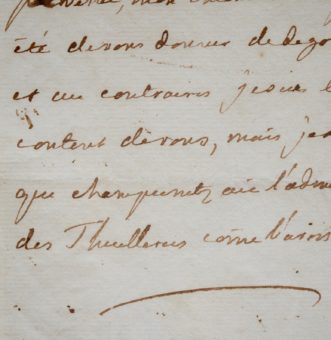 été de vous donner de dego
et au contraires je suis l
content de vous, mais je
que champcenetz aie l'adm
des Thuilleries come l'avoi